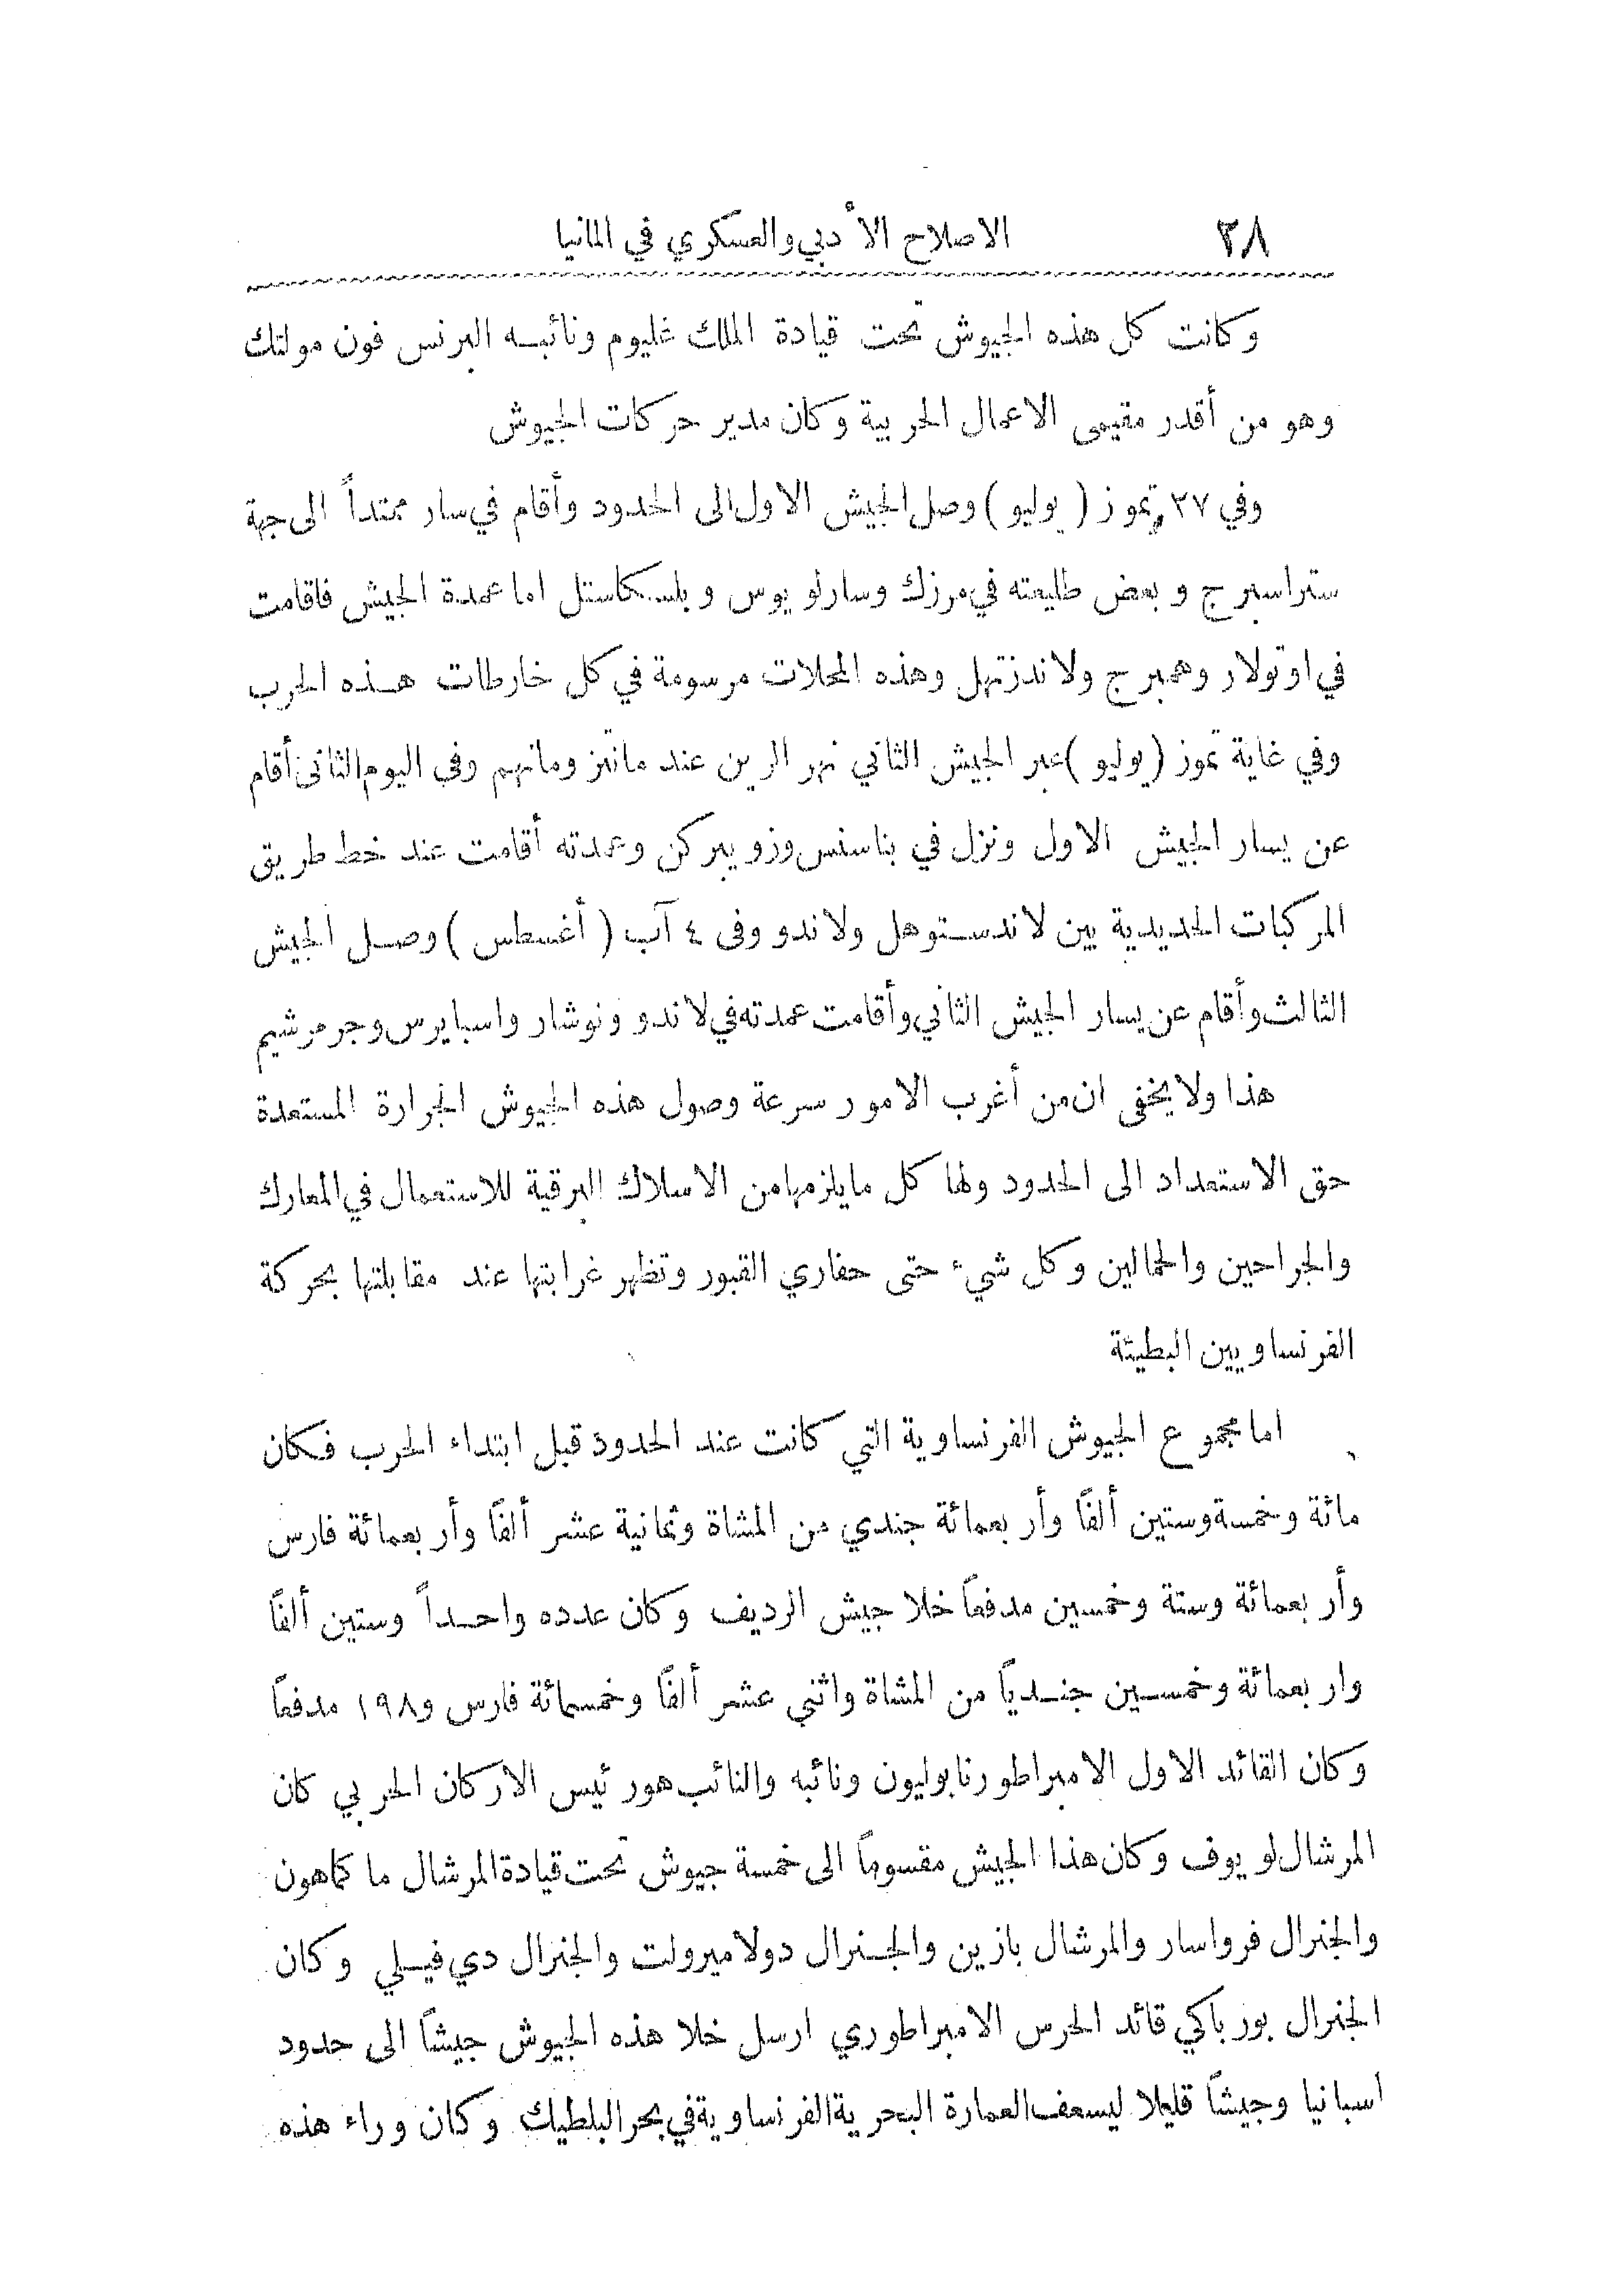 ٣٨ الاصلاح الأدبي والعسكري في المانيا
وكانت كل هذه الجيوش تحت قيادة الملك غليوم ونائبه البرنس فون مولتك
وهو من أقدر مقيمى الاعمال الحربية وكان مدير حركات الجيوش
وفي ٢٧ تموز ( يوليو ) وصل الجيش الاول الى الحدود وأقام في سار ممتداً الى جهة
ستراسبرج وبعض طليعته في مرزك وسارلو يوس وبلسكاستل اما عمدة الجيش فاقامت
في اوتولار وهمبرج ولاندزتهل وهذه المحلات مرسومة في كل خارطات هذه الحرب
وفي غاية تموز ( يوليو ) عبر الجيش الثاني نهر الرين عند مانتز ومانهم وفي اليوم الثانى أقام
عن يسار الجيش الاول ونزل في بناسنس وزويبركن وعمدته أقامت عند خط طريق
المركبات الحديدية بين لاندستوهل ولاندو وفى ٤ آب ( أغسطس ) وصل الجيش
الثالث وأقام عن يسار الجيش الثاني وأقامت عمدته في لاندو ونوشار واسبايرس وجرمرشيم
هذا ولا يخفى ان من أغرب الامور سرعة وصول هذه الجيوش الجرارة المستعدة
حق الاستعداد الى الحدود ولها كل ما يلزمها من الاسلاك البرقية للاستعمال في المعارك
والجراحين والحمالين وكل شيء حتى حفاري القبور وتظهر غرابتها عند مقابلتها بحركة
الفرنساويين البطيئة
اما مجموع الجيوش الفرنساوية التي كانت عند الحدود قبل ابتداء الحرب فكان
مائة وخمسة وستين ألفاً وأربعمائة جندي من المشاة وثمانية عشر ألفاً وأربعمائة فارس
وأربعمائة وستة وخمسين مدفعاً خلا جيش الرديف وكان عدده واحداً وستين ألفاً
واربعمائة وخمسين جندياً من المشاة واثني عشر ألفاً وخمسمائة فارس و١٩٨ مدفعاً
وكان القائد الاول الامبراطور نابوليون ونائبه والنائب هو رئيس الاركان الحربي كان
المرشال لو يوف وكان هذا الجيش مقسوماً الى خمسة جيوش تحت قيادة المرشال ما كماهون
والجنرال فرواسار والمرشال بازين والجنرال دولاميرولت والجنرال دي فيلي وكان
الجنرال بورباكي قائد الحرس الامبراطوري ارسل خلا هذه الجيوش جيشاً الى حدود
اسبانيا وجيشاً قليلا ليسعف العمارة البحرية الفرنساوية في بحر البلطيك وكان وراء هذه